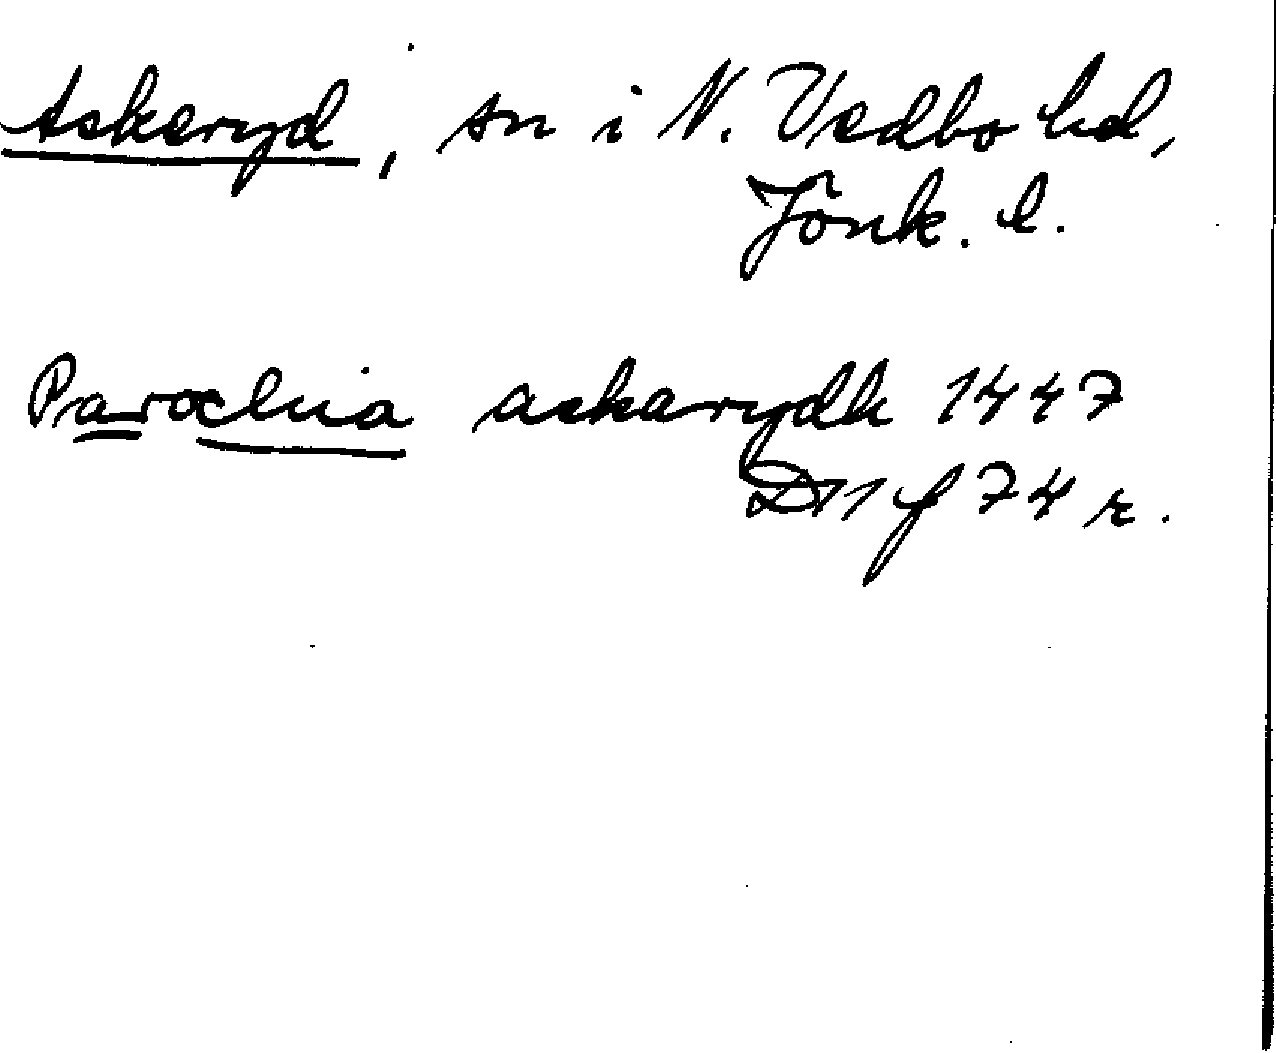 Askeryd, sn i N. Vedbo hd,
Jönk. l.
Parochia askarydh 1447
D11 f 74 r.